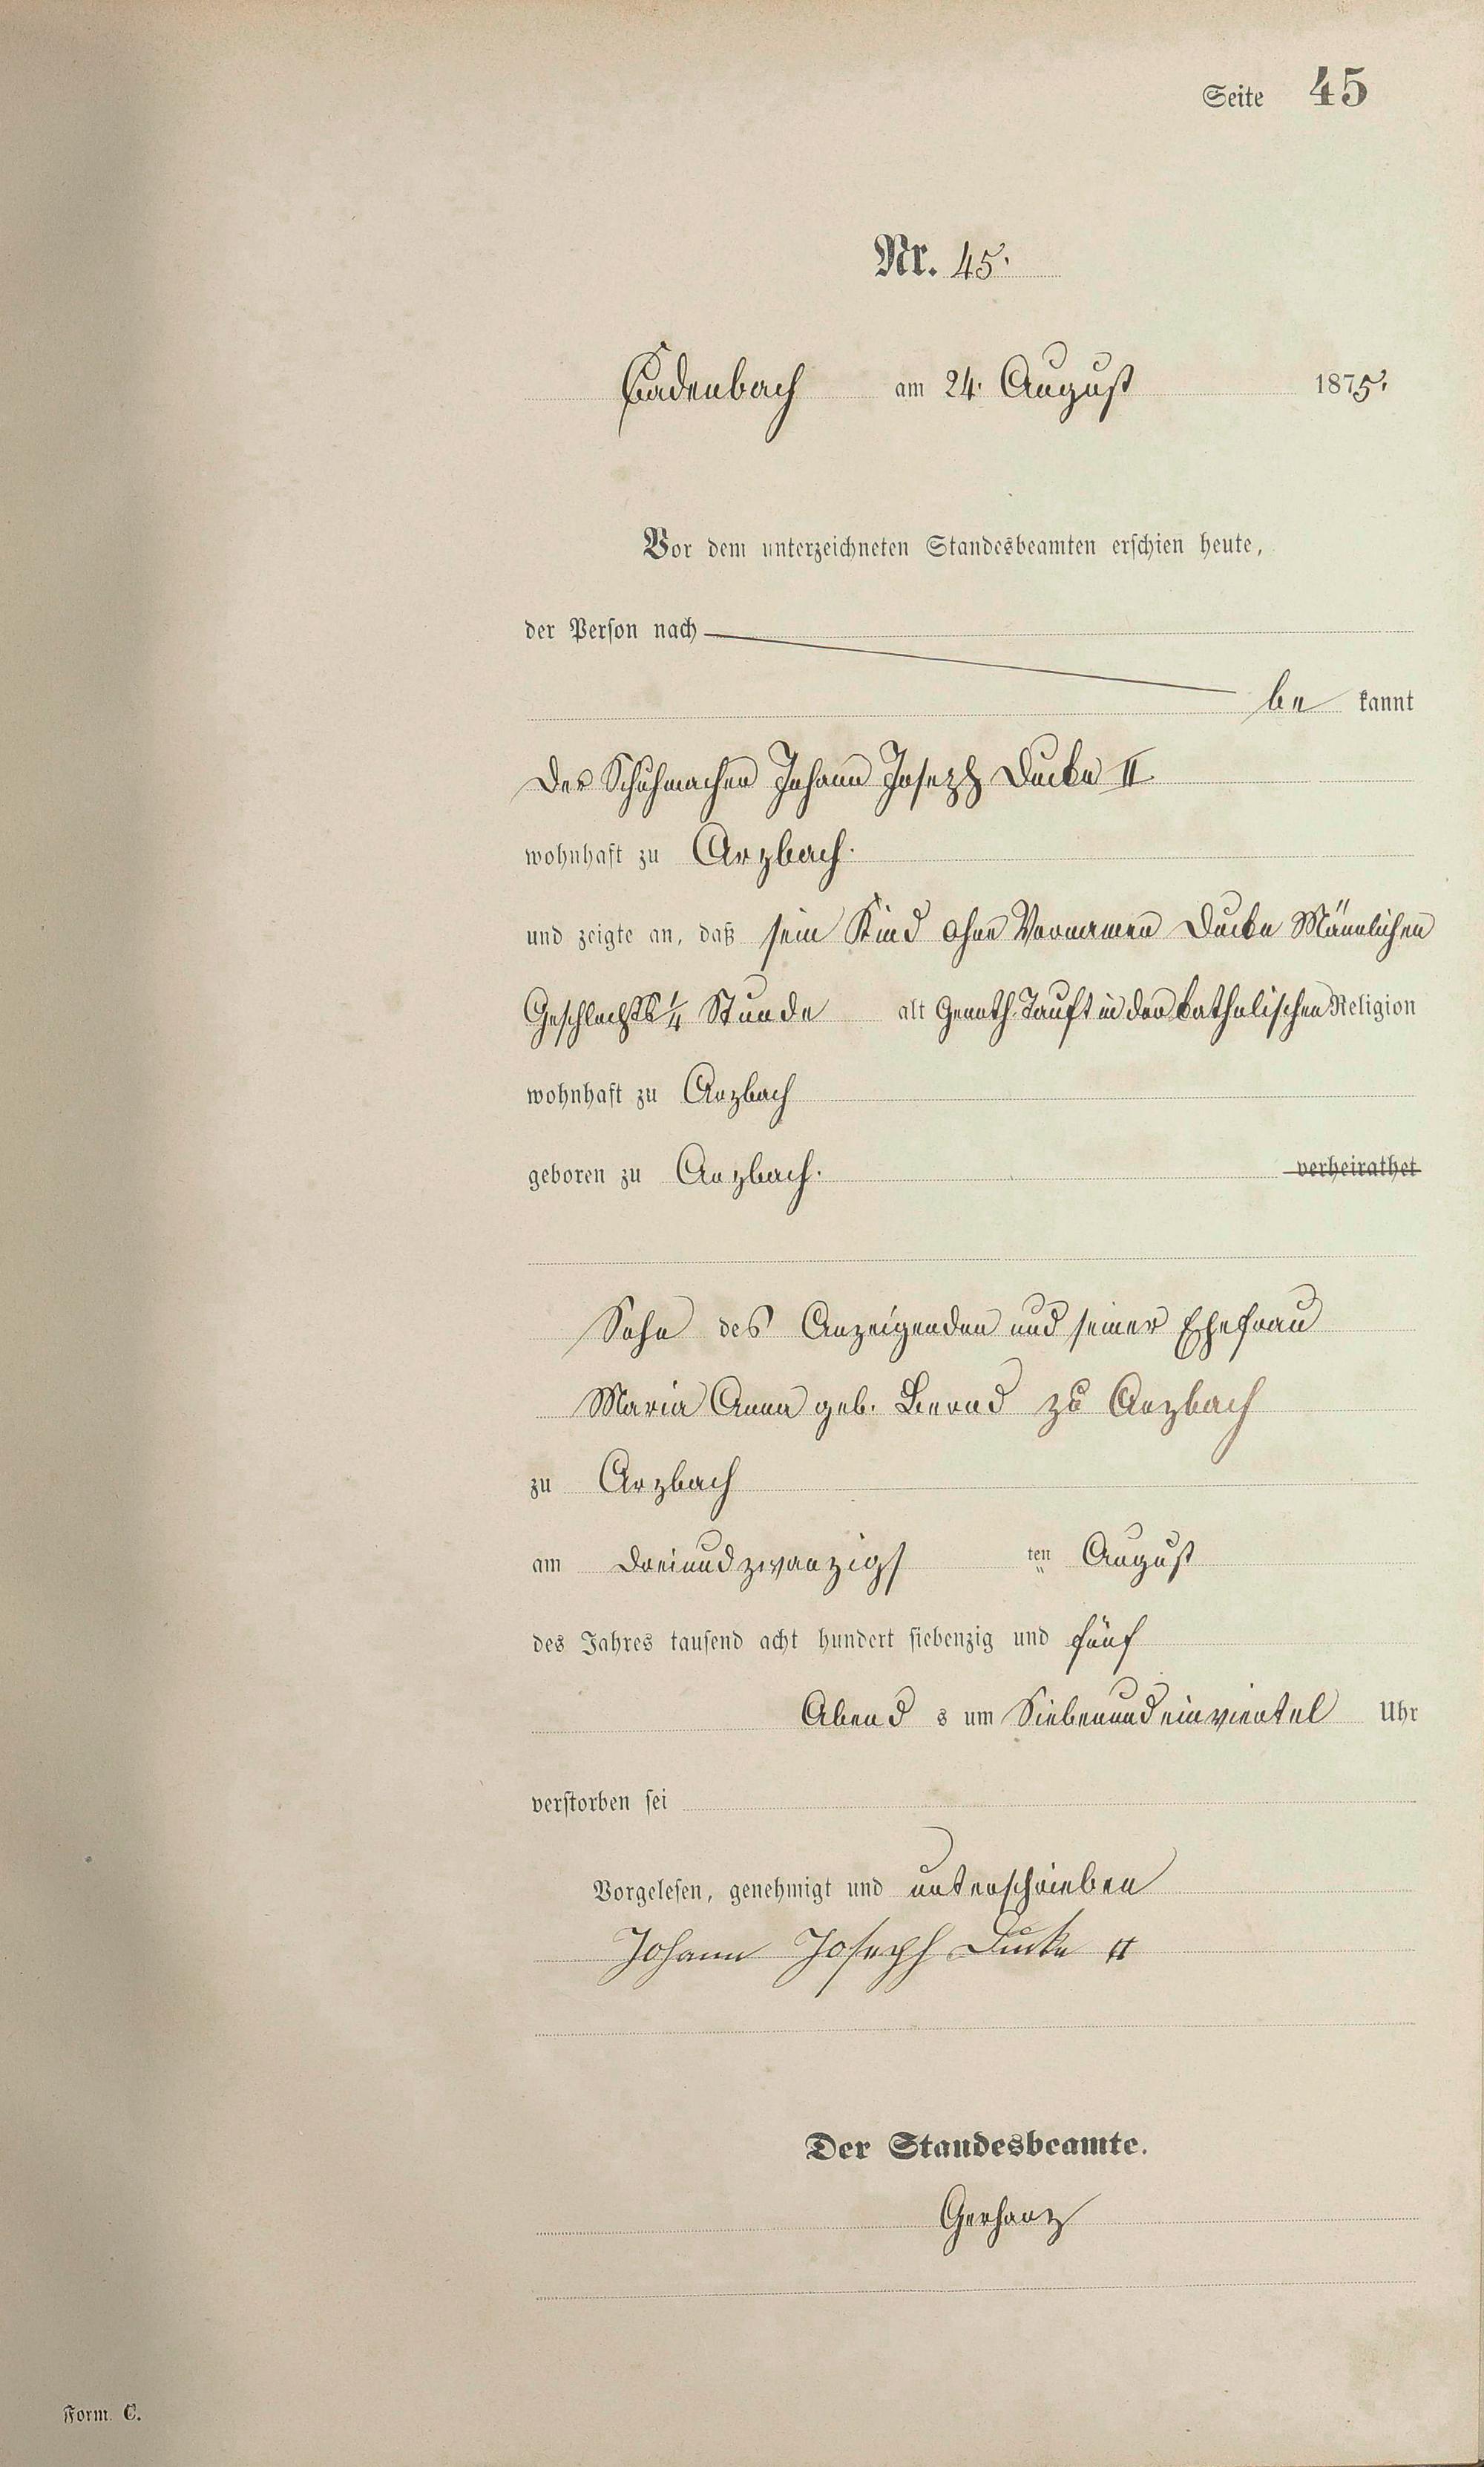 Seite 45
Nr. 45.
Kadenbach am 24. August 1875.
Vor dem unterzeichneten Standesbeamten erschien heute,
der Person nach
be kannt
Der Schuhmacher Johann Joseph Ducke II
wohnhaft zu Arzbach.
und zeigte an, daß sein Kind ohne Vornamen Ducke Männlichen
Geschlechts 1/4 Stunde alt Genoth-Tauft in der katholischen Religion
wohnhaft zu Arzbach
geboren zu Arzbach. verheirathet
Sohn des Anzeigenden und seiner Ehefrau
Maria Anna geb. Bernd zu Arzbach
zu Arzbach
am dreiundzwanzigs ten August
des Jahres tausend acht hundert siebenzig und fünf
Abend s um Siebenundeinviertel Uhr
verstorben sei
Vorgelesen, genehmigt und unterschrieben
Johann Joseph Ducke II
Der Standesbeamte.
Gerharz
Form. C.